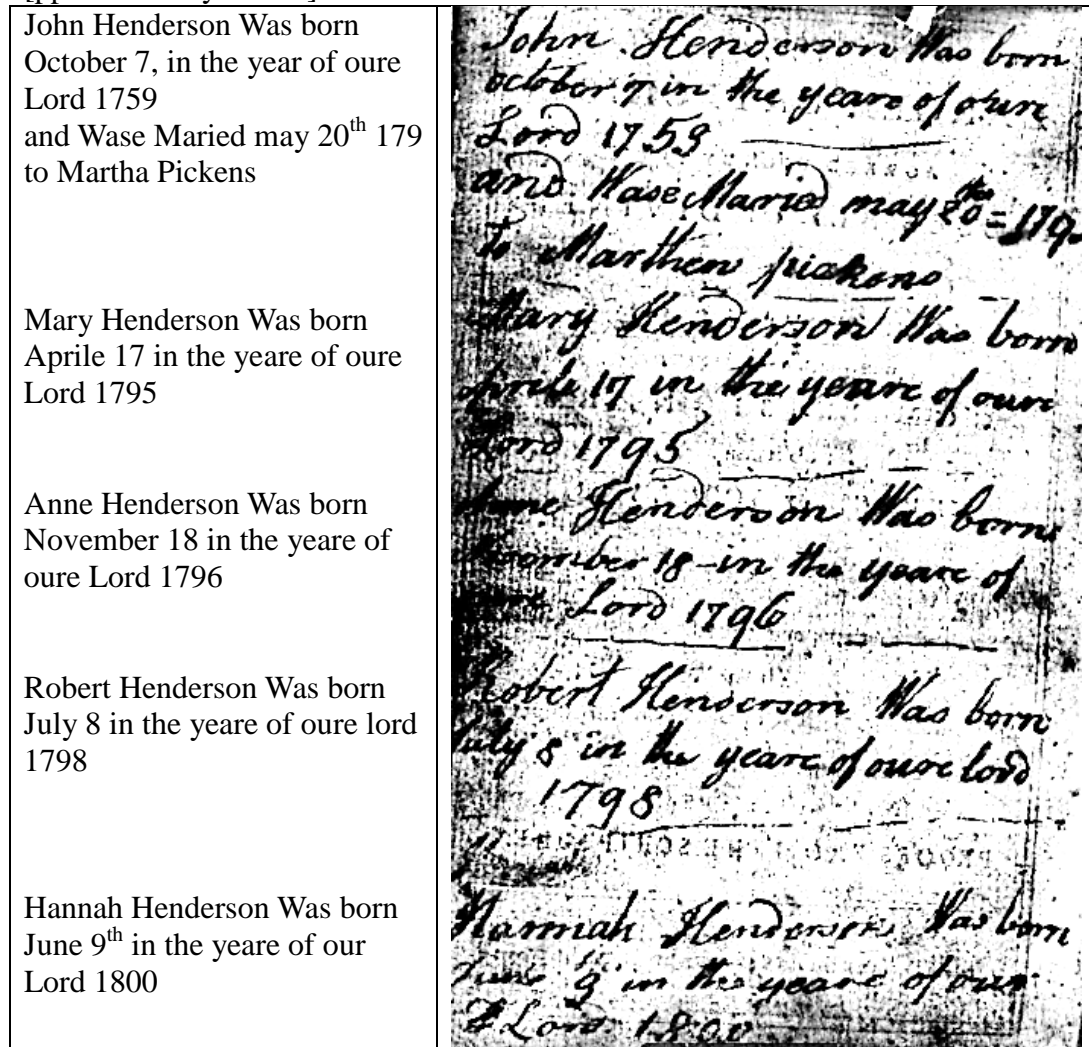 John Henderson Was born
October 7, in the year of oure
Lord 1759
and Wase Maried may 20th 179
to Martha Pickens
Mary Henderson Was born
Aprile 17 in the yeare of oure
Lord 1795
Anne Henderson Was born
November 18 in the yeare of
oure Lord 1796
Robert Henderson Was born
July 8 in the yeare of oure lord
1798
Hannah Henderson Was born
June 9th in the yeare of our
Lord 1800
John Henderson Was born
october 7 in the yeare of oure
Lord 1759
and Wase Maried may 20th = 179
to pickens
Mary Henderson Was born
Aprile 17 in the yeare of oure
Lord 1795
Anne Henderson Was born
November 18 in the yeare of
Lord 1796
Robert Henderson Was born
July 8 in the yeare of oure lord
1798
Hannah Henderson Was born
June 9 in the yeare of our
Lord 1800